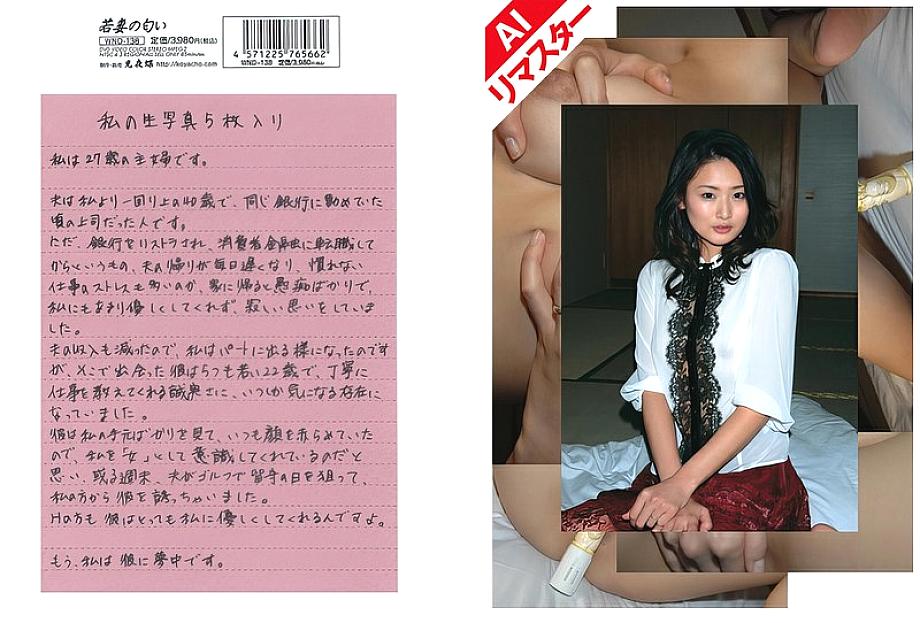 若妻の匂い
WND-138 定価/3,980円(税込)
DVD VIDEO COLOR STEREO MPEG-2
http://koyacho.com
4 571225 765662
WND-138 定価/3,980円(税込)
私の生写真5枚入り
私は27歳の主婦です。
夫は私より一回り上の40歳で、同じ銀行に勤めていた
頃の上司だった人です。
ただ、銀行をリストラされ、消費者金融に転職して
からというもの、夫の帰りが毎日遅くなり、慣れない
仕事のストレスも多いのか、家に帰ると愚痴ばかりで、
私にもあまり優しくしてくれず、寂しい思いをしていま
した。
夫の収入も減ったので、私はパートに出る様になったのです
が、そこで出会った彼は5つも若い22歳で、丁寧に
仕事を教えてくれる誠実さに、いつしか気になる存在に
なっていました。
彼は私の手元ばかりを見て、いつも顔を赤らめていた
ので、私を「女」として意識してくれているのだと
思い、或る週末、夫がゴルフで留守の日を狙って、
私の方から彼を誘っちゃいました。
Hの方も彼はとっても私に優しくしてくれるんですよ。
もう、私は彼に夢中です。
AI
リマスター